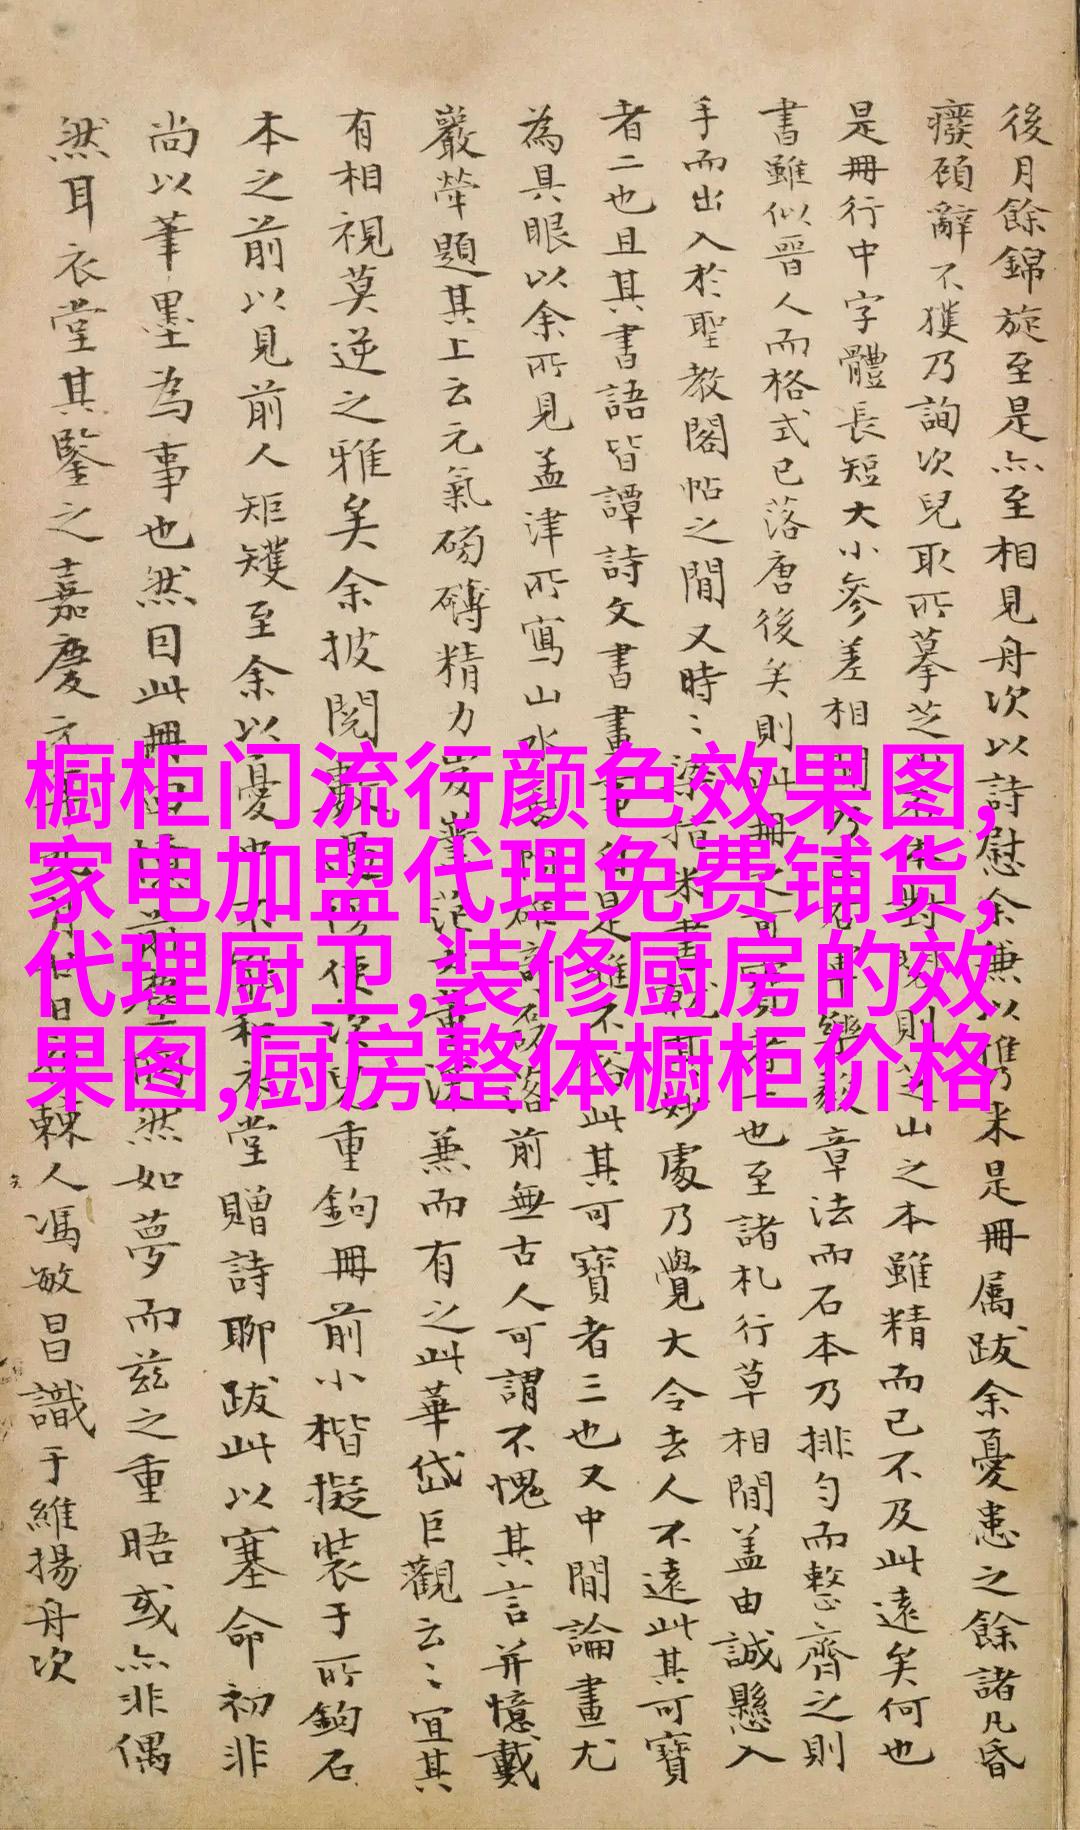 後月餘錦旋至是亦至相見舟次以詩慰余兼以隽来是冊属跋余憂患之餘諸凡昏
癈頋辭不獲乃詢次兒取所摹芝山之本雖精而已不及此遠矣何也
是冊行中字體長短大小參差相章法而石本乃排勻而整齊之則
書雖似晉人而格式已落唐後矣則此冊也至諸札行草相間盖由誠懸入
手而出入於聖教閣帖之間又時〻妙處乃覺大令去人不遠此其可寶
者二也且其書語皆譚詩文書畫此其可寶者三也又中間論畫尤
為具眼以余所見孟津所寫山水前無古人可謂不愧其言并憶戴
巖犖題其上云元氣磅礴精力兼而有之此華岱巨觀云〻宜其
有相視莫逆之雅矣余披閱數重鉤冊前小楷擬装于所鉤石
本之前以見前人矩矱至余以憂堂贈詩聊跋此以塞命初非
尚以筆墨為事也然因此冊然如夢而茲之重晤或亦非偶
然耳衣堂其鑒之嘉慶棘人馮敏昌識于維揚舟次
橱柜门流行颜色效果图,
家电加盟代理免费铺货,
代理厨卫,装修厨房的效
果图,厨房整体橱柜价格